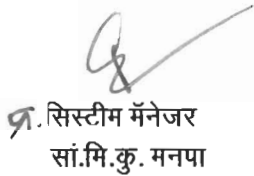 प्र. सिस्टीम मॅनेजर
सां.मि.कु. मनपा